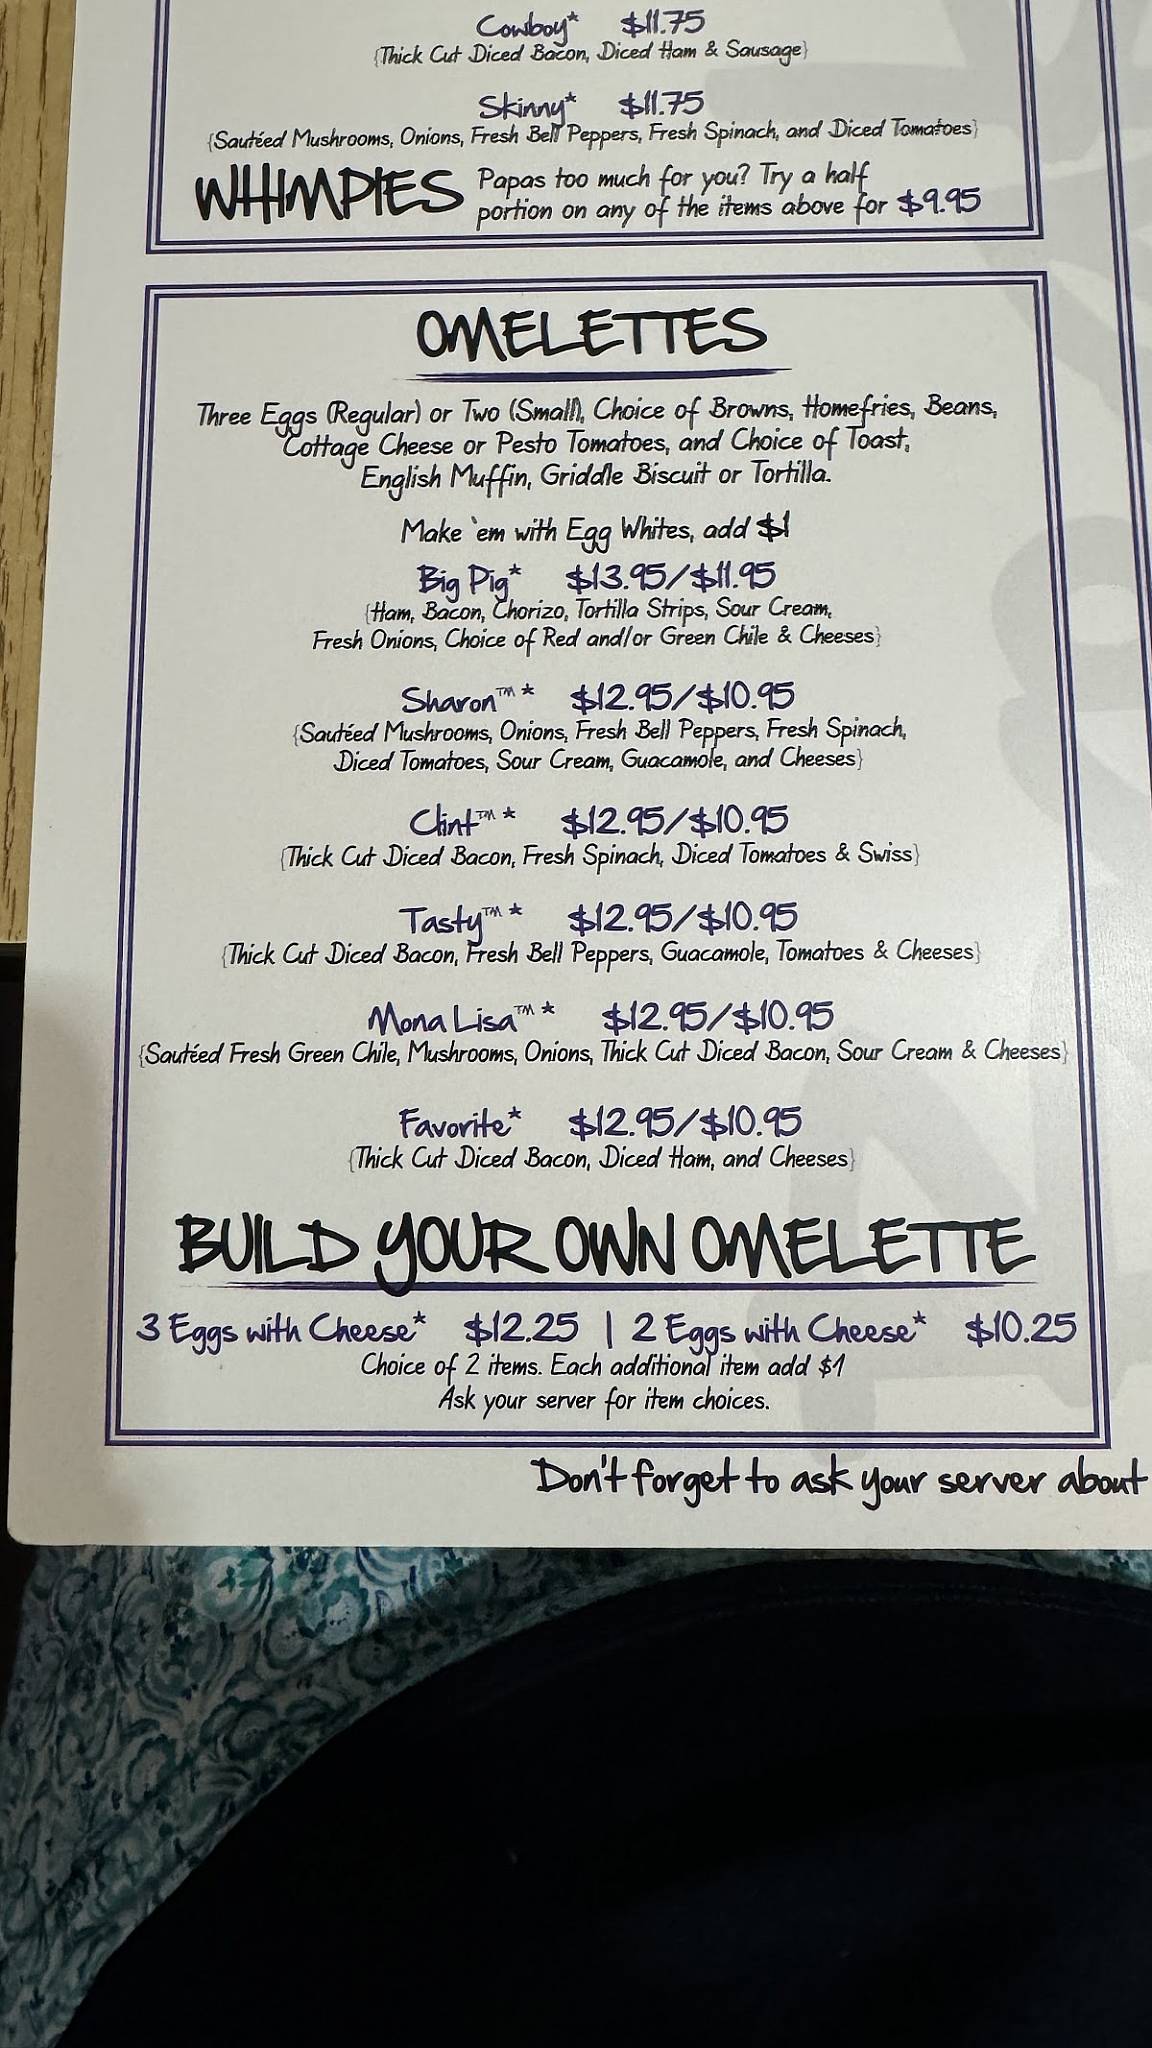 Cowboy* $11.75
{Thick Cut Diced Bacon, Diced Ham & Sausage}
Skinny* $11.75
{Sautéed Mushrooms, Onions, Fresh Bell Peppers, Fresh Spinach, and Diced Tomatoes}
WHIMPIES Papas too much for you? Try a half
portion on any of the items above for $9.95
OMELETTES
Three Eggs (Regular) or Two (Small), Choice of Browns, Homefries, Beans,
Cottage Cheese or Pesto Tomatoes, and Choice of Toast,
English Muffin, Griddle Biscuit or Tortilla.
Make 'em with Egg Whites, add $1
Big Pig* $13.95/$11.95
{Ham, Bacon, Chorizo, Tortilla Strips, Sour Cream,
Fresh Onions, Choice of Red and/or Green Chile & Cheeses}
Sharon™* $12.95/$10.95
{Sautéed Mushrooms, Onions, Fresh Bell Peppers, Fresh Spinach,
Diced Tomatoes, Sour Cream, Guacamole, and Cheeses}
Clint™* $12.95/$10.95
{Thick Cut Diced Bacon, Fresh Spinach, Diced Tomatoes & Swiss}
Tasty™* $12.95/$10.95
{Thick Cut Diced Bacon, Fresh Bell Peppers, Guacamole, Tomatoes & Cheeses}
Mona Lisa™* $12.95/$10.95
{Sautéed Fresh Green Chile, Mushrooms, Onions, Thick Cut Diced Bacon, Sour Cream & Cheeses}
Favorite* $12.95/$10.95
{Thick Cut Diced Bacon, Diced Ham, and Cheeses}
BUILD YOUR OWN OMELETTE
3 Eggs with Cheese* $12.25 | 2 Eggs with Cheese* $10.25
Choice of 2 items. Each additional item add $1
Ask your server for item choices.
Don't forget to ask your server about